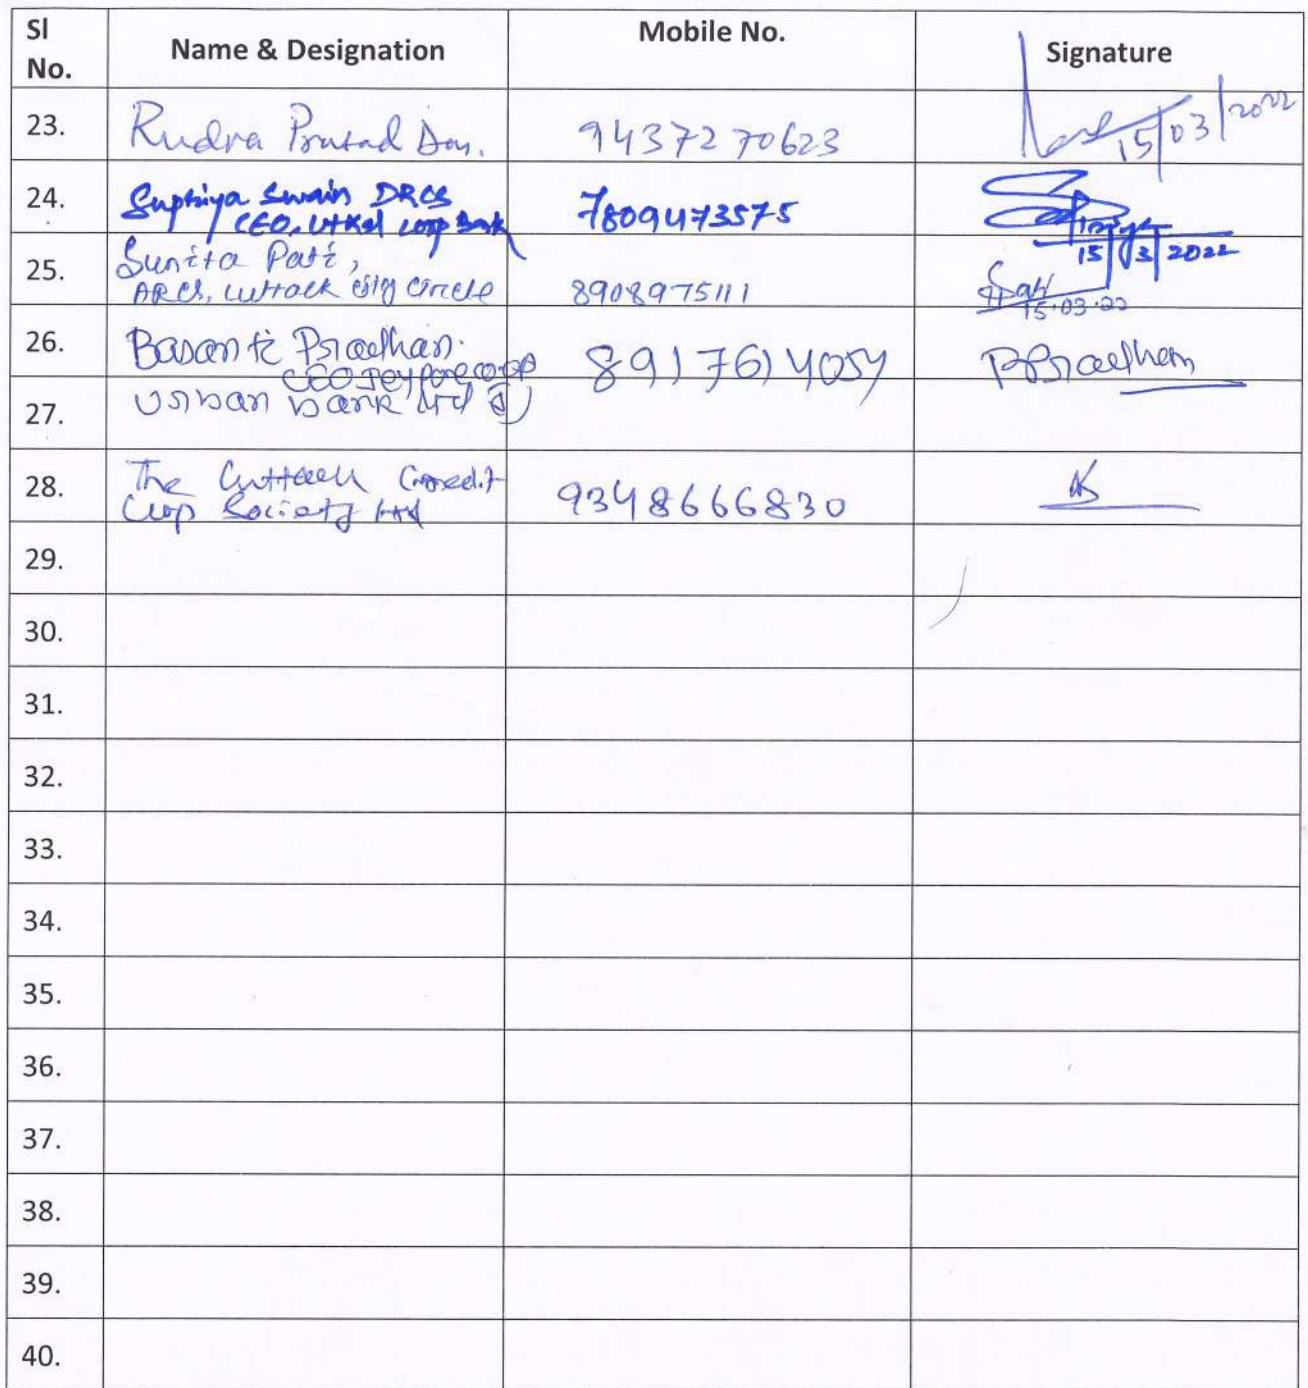 Sl No. Name & Designation Mobile No. Signature
23. Rudra Prasad Das. 9437270623 15/03/2022
24. Supriya Swain DRCS 7809473575
CEO, Utkal Coop Bank 15/3/2022
25. Sunita Pati,
ARCS, Cuttack City Circle 8908975111 15.03.22
26. Basanti Pradhan. 8917614054 BPradhan
CEO Jeypore coop
27. Urban bank Ltd
28. The Cuttack Credit
Coop Society Ltd 9348666830
29.
30.
31.
32.
33.
34.
35.
36.
37.
38.
39.
40.